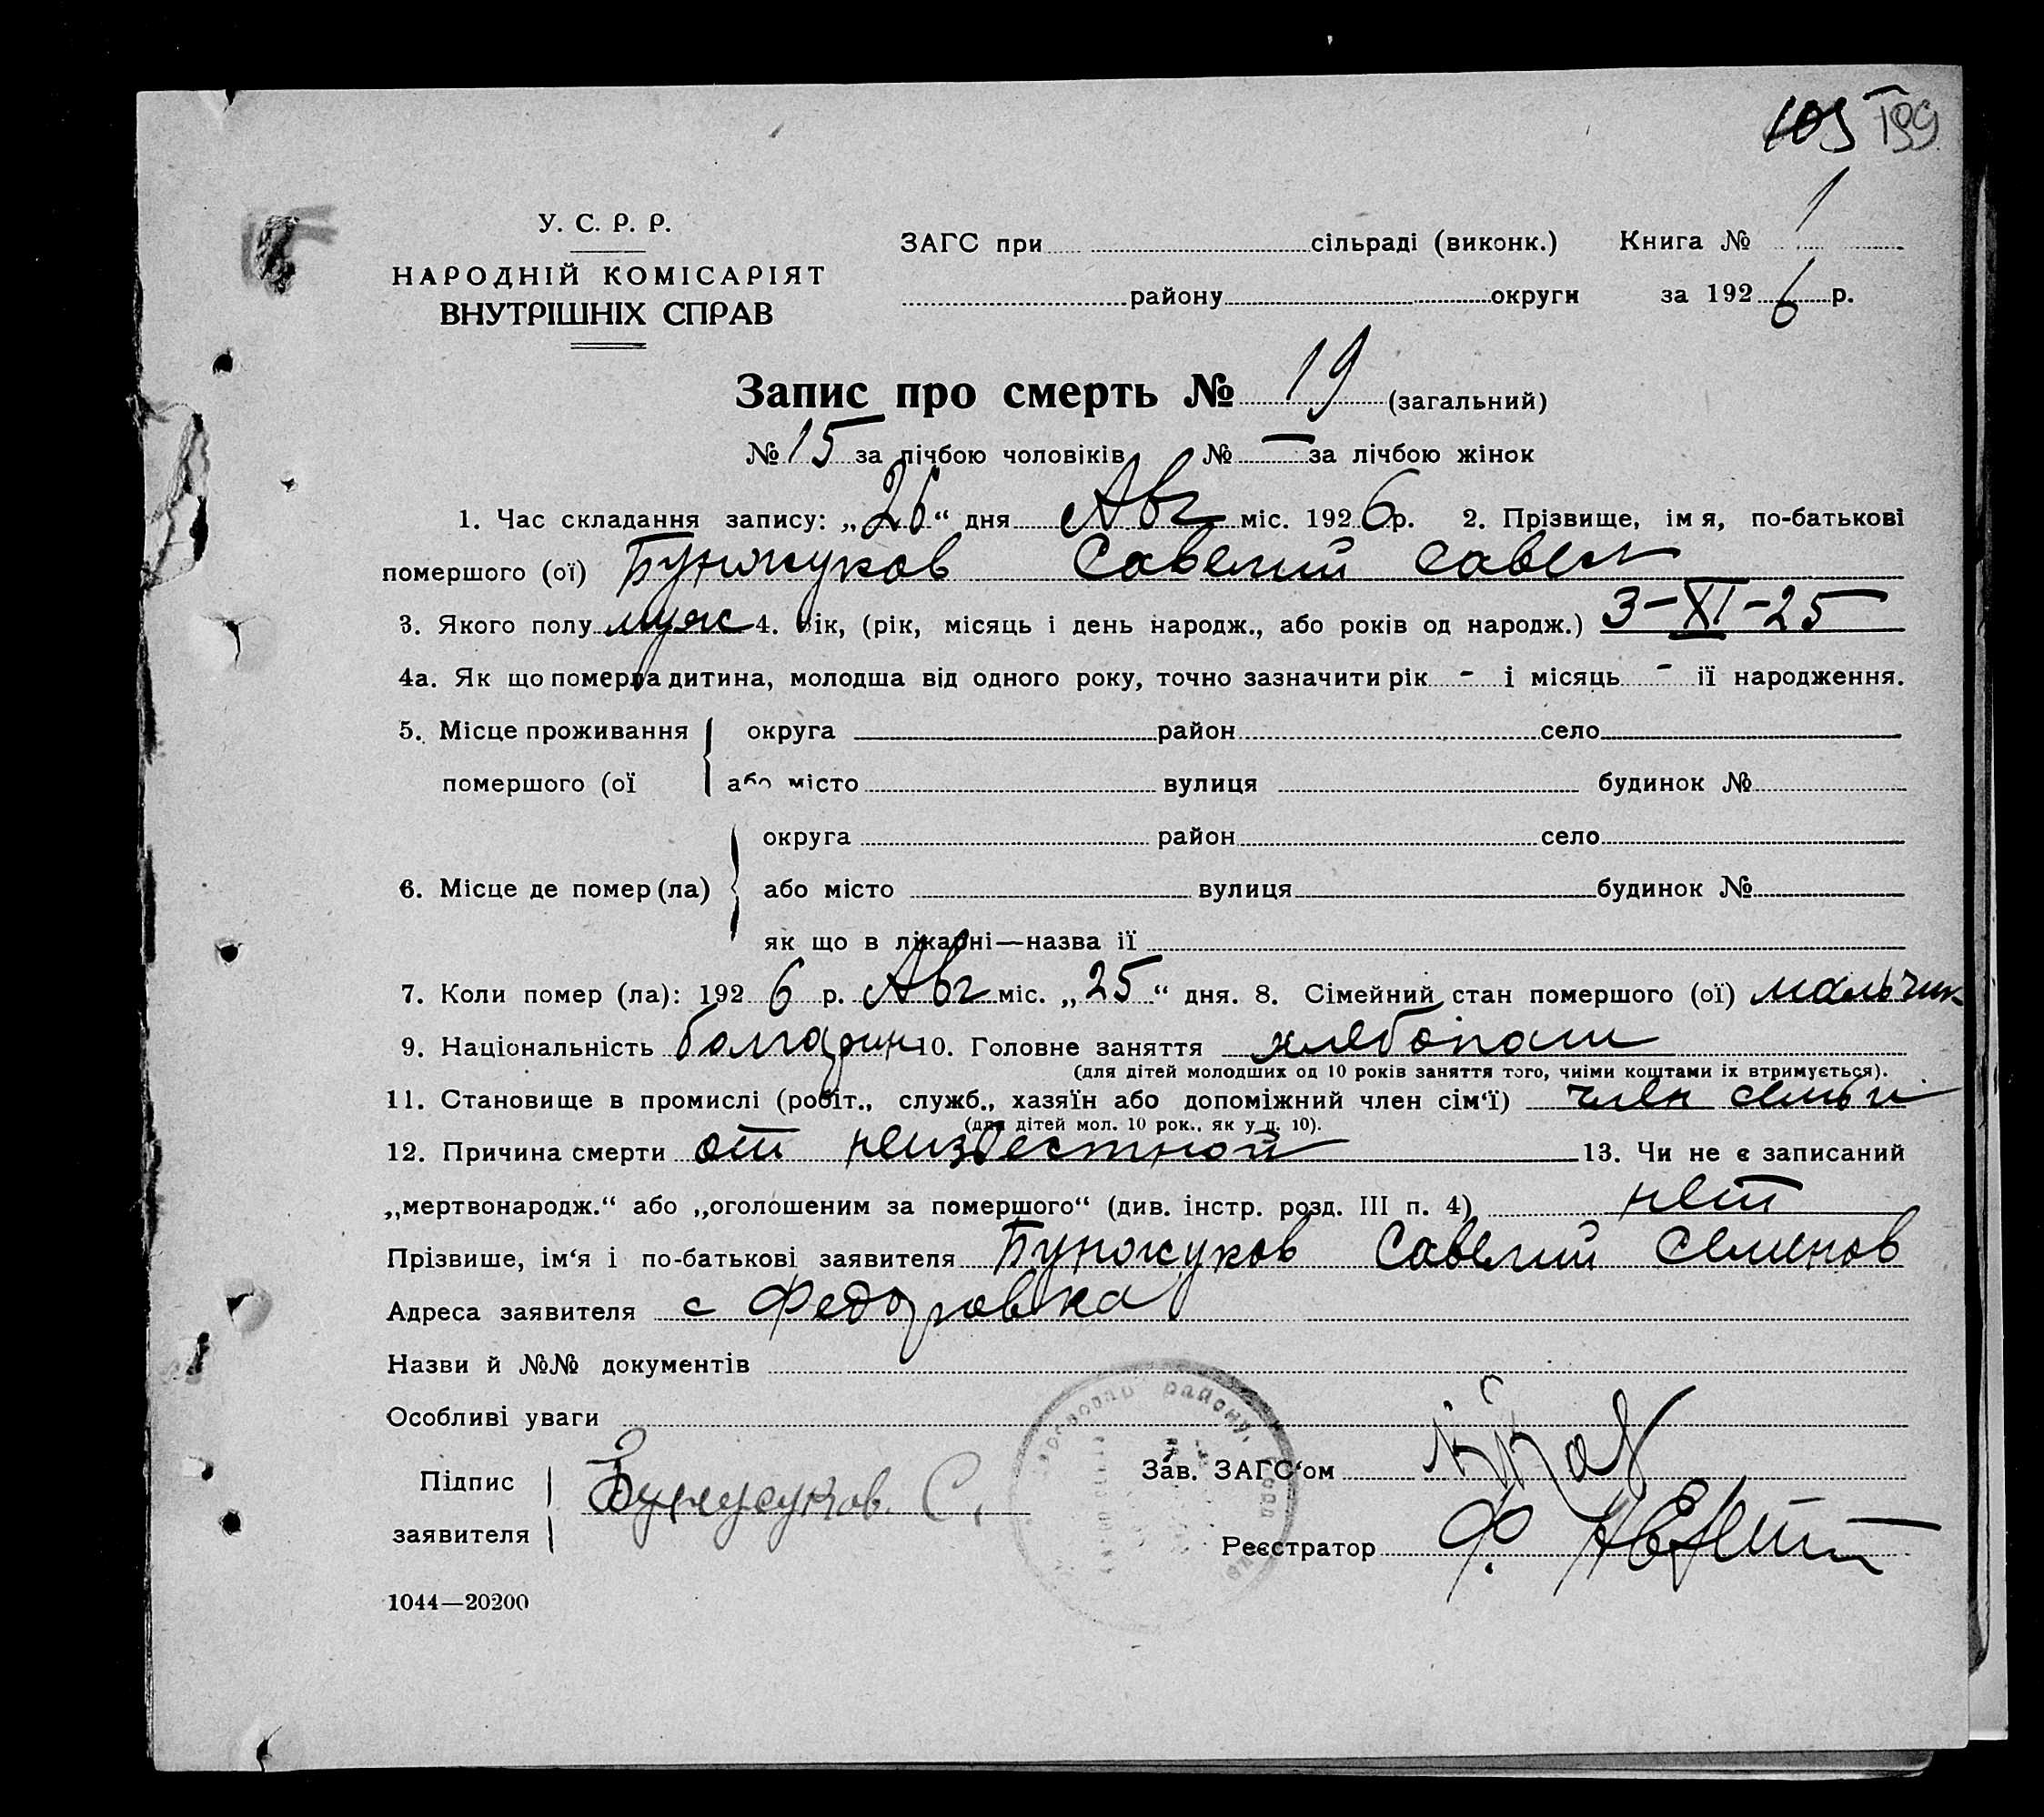 105 199
У. С. Р. Р.
НАРОДНІЙ КОМІСАРІЯТ
ВНУТРІШНІХ СПРАВ
ЗАГС при сільраді (виконк.) Книга № 1
району округи за 1926 р.
Запис про смерть № 19 (загальний)
№ 15 за лічбою чоловіків № — за лічбою жінок
1. Час складання запису: „26“ дня Авг міс. 1926 р. 2. Прізвище, ім я, по-батькові
помершого (ої) Бунжуков Савелий Савел
3. Якого полу муж 4. Вік, (рік, місяць і день народж., або років од народж.) 3-XI-25
4а. Як що померла дитина, молодша від одного року, точно зазначити рік - і місяць - ії народження.
5. Місце проживання округа район село
помершого (ої або місто вулиця будинок №
округа район село
6. Місце де помер (ла) або місто вулиця будинок №
як що в лікарні—назва ії
7. Коли помер (ла): 1926 р. Авг міс. „25“ дня. 8. Сімейний стан помершого (ої) мальчик
9. Національність болгарин 10. Головне заняття хлебопаш
(для дітей молодших од 10 років заняття того, чиїми коштами їх втримується).
11. Становище в промислі (робіт., служб., хазяїн або допоміжний член сім‘ї) член семьи
(для дітей мол. 10 рок., як у п. 10).
12. Причина смерти от неизвестной 13. Чи не є записаний
„мертвонародж.“ або „оголошеним за помершого“ (див. інстр. розд. III п. 4) нет
Прізвише, ім‘я і по-батькові заявителя Бунжуков Савелий Семенов
Адреса заявителя с Федоровка
Назви й №№ документів
Особливі уваги
району,
Підпис
заявителя
Бунжуков С.
Зав. ЗАГС‘ом
Реєстратор
1044—20200